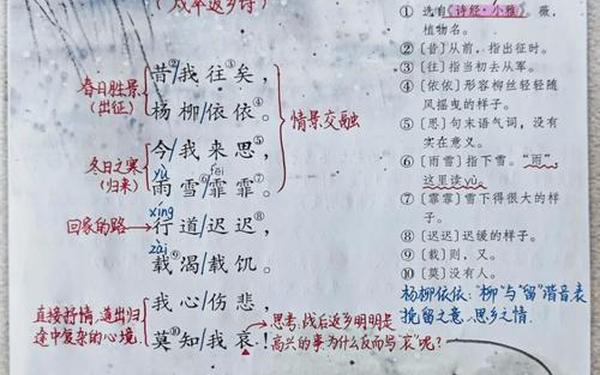 (戍卒返乡诗)
春日胜景
(出征)
昔②/我往③矣,
杨柳/依依④。
冬日之寒
(归来)
今/我来思⑤,
yù fēi
雨雪⑥/霏霏⑦。
情景交融
xíng
回家的路
行道/迟迟⑧,
zài
载⑨渴/载饥。
直接抒情,道出归
途中复杂的心境.
我心/伤悲,
莫⑩知/我哀!
思考:战后返乡明明是
高兴的事为什么反而写"哀"呢?
① 选自《诗经·小雅》。薇,
植物名。
②〔昔〕从前,指出征时。
③〔往〕指当初去从军。
④〔依依〕形容柳丝轻轻随
风摇曳的样子。
⑤〔思〕句末语气词,没有
实在意义。
⑥〔雨雪〕指下雪。“雨”,
这里读yù。
⑦〔霏霏〕雪下得很大的样
子。
⑧〔迟迟〕迟缓的样子。
⑨〔载〕则,又。
⑩〔莫〕没有人。
杨柳依依:"柳"与"留"谐音.表
挽留之意、思乡之情.